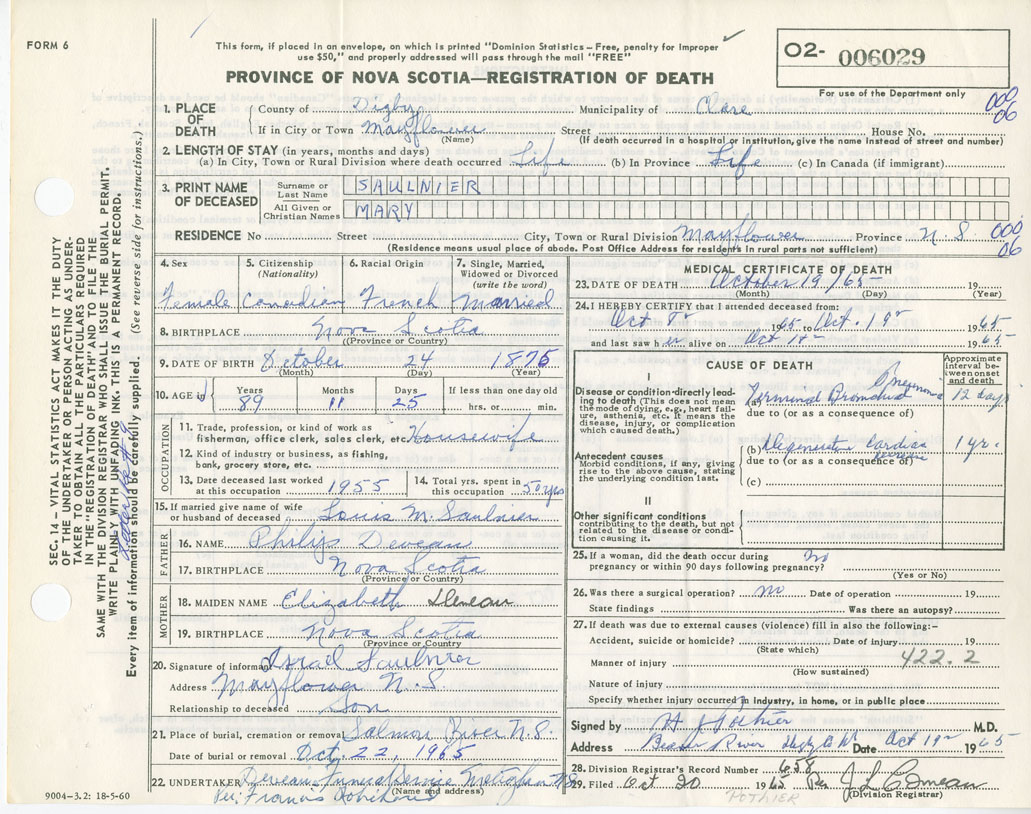 FORM 6
This form, if placed in an envelope, on which is printed "Dominion Statistics – Free, penalty for Improper
use $50," and properly addressed will pass through the mail "FREE"
PROVINCE OF NOVA SCOTIA—REGISTRATION OF DEATH
O2- 006029
For use of the Department only
000
06
SEC. 14 – VITAL STATISTICS ACT MAKES IT THE DUTY
OF THE UNDERTAKER OR PERSON ACTING AS UNDER-
TAKER TO OBTAIN ALL THE PARTICULARS REQUIRED
IN THE "REGISTRATION OF DEATH" AND TO FILE THE
SAME WITH THE DIVISION REGISTRAR WHO SHALL ISSUE THE BURIAL PERMIT.
WRITE PLAINLY WITH UNFADING INK. THIS IS A PERMANENT RECORD.
Every item of information should be carefully supplied. (See reverse side for instructions.)
1. PLACE OF DEATH
County of Digby Municipality of Clare
If in City or Town Mayflower Street House No.
(Name) (If death occurred in a hospital or institution, give the name instead of street and number)
2. LENGTH OF STAY (in years, months and days)
(a) In City, Town or Rural Division where death occurred Life (b) In Province Life (c) In Canada (if immigrant)
3. PRINT NAME OF DECEASED
Surname or Last Name SAULNIER
All Given or Christian Names MARY
RESIDENCE No Street City, Town or Rural Division Mayflower Province N.S
(Residence means usual place of abode. Post Office Address for residents in rural parts not sufficient)
000
06
4. Sex 5. Citizenship (Nationality) 6. Racial Origin 7. Single, Married, Widowed or Divorced (write the word)
Female Canadian French Married
8. BIRTHPLACE Nova Scotia
(Province or Country)
9. DATE OF BIRTH October 24 1875
(Month) (Day) (Year)
10. AGE in Years Months Days If less than one day old
89 11 25 hrs. or min.
OCCUPATION
11. Trade, profession, or kind of work as
fisherman, office clerk, sales clerk, etc. Housewife
12. Kind of industry or business, as fishing,
bank, grocery store, etc.
13. Date deceased last worked at this occupation 1955 14. Total yrs. spent in this occupation 50 yrs
15. If married give name of wife
or husband of deceased Louis M. Saulnier
FATHER
16. NAME Philip Deveau
17. BIRTHPLACE Nova Scotia
(Province or Country)
MOTHER
18. MAIDEN NAME Elizabeth
19. BIRTHPLACE Nova Scotia
(Province or Country)
20. Signature of informant Israel Saulnier
Address Mayflower N.S.
Relationship to deceased Son
21. Place of burial, cremation or removal Salmon River N.S.
Date of burial or removal Oct. 22 1965
22. UNDERTAKER Deveau Funeral Service Meteghan NS
(Name and address)
per. Francis
9004-3.2: 18-5-60
MEDICAL CERTIFICATE OF DEATH
23. DATE OF DEATH October 19/65 19
(Month) (Day) (Year)
24. I HEREBY CERTIFY that I attended deceased from:
Oct 1965 to Oct. 19 1965
and last saw her alive on Oct 1965
CAUSE OF DEATH
Approximate interval between onset and death
I
Disease or condition directly lead-
ing to death (This does not mean
the mode of dying, e.g., heart fail-
ure, asthenia, etc. It means the
disease, injury, or complication
which caused death.)
(a) Terminal Broncho Pneumonia 12 days
due to (or as a consequence of)
Antecedent causes
Morbid conditions, if any, giving
rise to the above cause, stating
the underlying condition last.
(b) Degenerative Cardiac disease 1 yr.
due to (or as a consequence of)
(c)
II
Other significant conditions
contributing to the death, but not
related to the disease or condi-
tion causing it.
25. If a woman, did the death occur during
pregnancy or within 90 days following pregnancy? no
(Yes or No)
26. Was there a surgical operation? no Date of operation 19
State findings Was there an autopsy?
27. If death was due to external causes (violence) fill in also the following:–
Accident, suicide or homicide? Date of injury 19
(State which)
422.2
Manner of injury
(How sustained)
Nature of injury
Specify whether injury occurred in industry, in home, or in public place
Signed by H J Pothier M.D.
Address Beaver River Digby Co NS Date Oct 19 1965
28. Division Registrar's Record Number 658
29. Filed Oct 20 1965 Per J L Comeau
(Division Registrar)
POTHIER